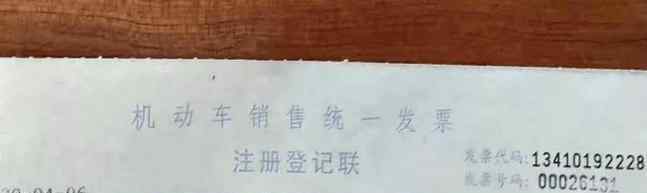 机动车销售统一发票
注册登记联
发票代码:13410192228
发票号码: 00026131
04-06